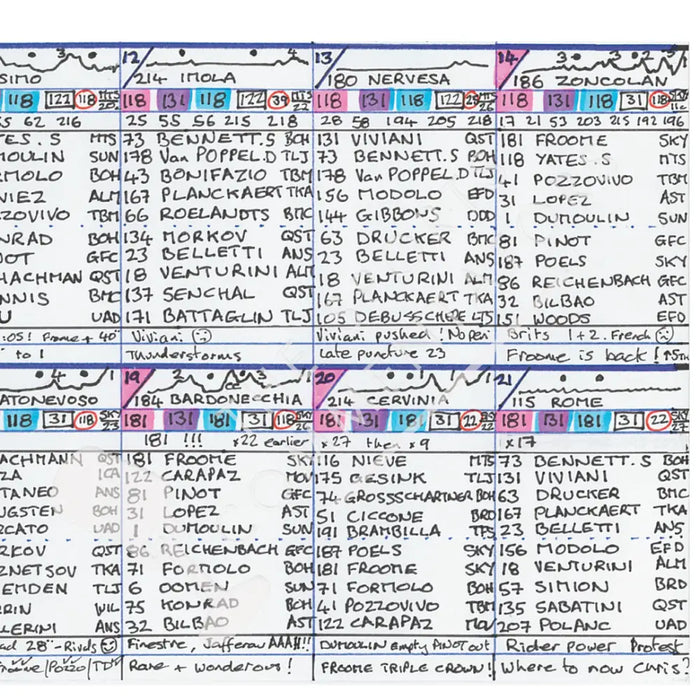 3 12 4 13 14 3 2
SIMO 214 IMOLA 180 NERVESA 186 ZONCOLAN
118 122 118 118 131 118 122 39 118 131 118 122 118 131 118 31 118
5 62 216 25 55 56 215 218 28 58 194 205 218 17 21 53 203 215 192 196
TES.S MTS 73 BENNETT.S BOH 131 VIVIANI QST 181 FROOME SKY
MOULIN SUN 178 Van POPPEL.D TLJ 73 BENNETT.S BOH 118 YATES.S MTS
RMOLO BOH 43 BONIFAZIO TBM 178 Van POPPEL.D TLJ 41 POZZOVIVO TBM
NIEZ ALM 167 PLANCKAERT TKA 156 MODOLO EFD 31 LOPEZ AST
ZOVIVO TBM 66 ROELANDTS BMC 144 GIBBONS DDD 1 DUMOULIN SUN
NRAD BOH 134 MORKOV QST 63 DRUCKER BMC 81 PINOT GFC
NOT GFC 23 BELLETTI ANS 23 BELLETTI ANS 187 POELS SKY
HACHMAN QST 18 VENTURINI ALM 18 VENTURINI ALM 86 REICHENBACH GFC
NNIS BMC 137 SENCHAL QST 167 PLANCKAERT TKA 32 BILBAO AST
U UAD 171 BATTAGLIN TLJ 105 DEBUSSCHERE LTS 151 WOODS EFD
:05! Froome + 40" Viviani Viviani pushed! No pen Brits 1+2. French
to 1 Thunderstorms Late puncture 23 Froome is back!
4 3 19 2 3 20 1 1 1 21
ATONEVOSO 184 BARDONECCHIA 214 CERVINIA 115 ROME
118 31 118 181 131 181 31 118 181 131 181 31 22 181 131 181 31 22
181 !!! x22 earlier x27 then x9 x17
ACHMANN QST 181 FROOME SKY 116 NIEVE MTS 73 BENNETT.S BOH
ZA ICA 122 CARAPAZ MOV 175 GESINK TLJ 131 VIVIANI QST
TANEO ANS 81 PINOT GFC 74 GROSSSCHARTNER BOH 63 DRUCKER BMC
UGSTEN BOH 31 LOPEZ AST 51 CICCONE BRD 167 PLANCKAERT TKA
RCATO UAD 1 DUMOULIN SUN 191 BRAMBILLA TFS 23 BELLETTI ANS
RKOV QST 86 REICHENBACH GFC 187 POELS SKY 156 MODOLO EFD
ZNETSOV TKA 71 FORMOLO BOH 181 FROOME SKY 18 VENTURINI ALM
EMDEN TLJ 6 OOMEN SUN 71 FORMOLO BOH 57 SIMION BRD
RIN WIL 75 KONRAD BOH 41 POZZOVIVO TBM 135 SABATINI QST
LERINI ANS 32 BILBAO AST 122 CARAPAZ MOV 207 POLANC UAD
ad 28" - Rivals Finestre, Jafferau AAAH!!! DUMOULIN empty PINOT out Rider power Protest
/Pozzo/TD Rare + wonderous! FROOME TRIPLE CROWN! Where to now Chris?